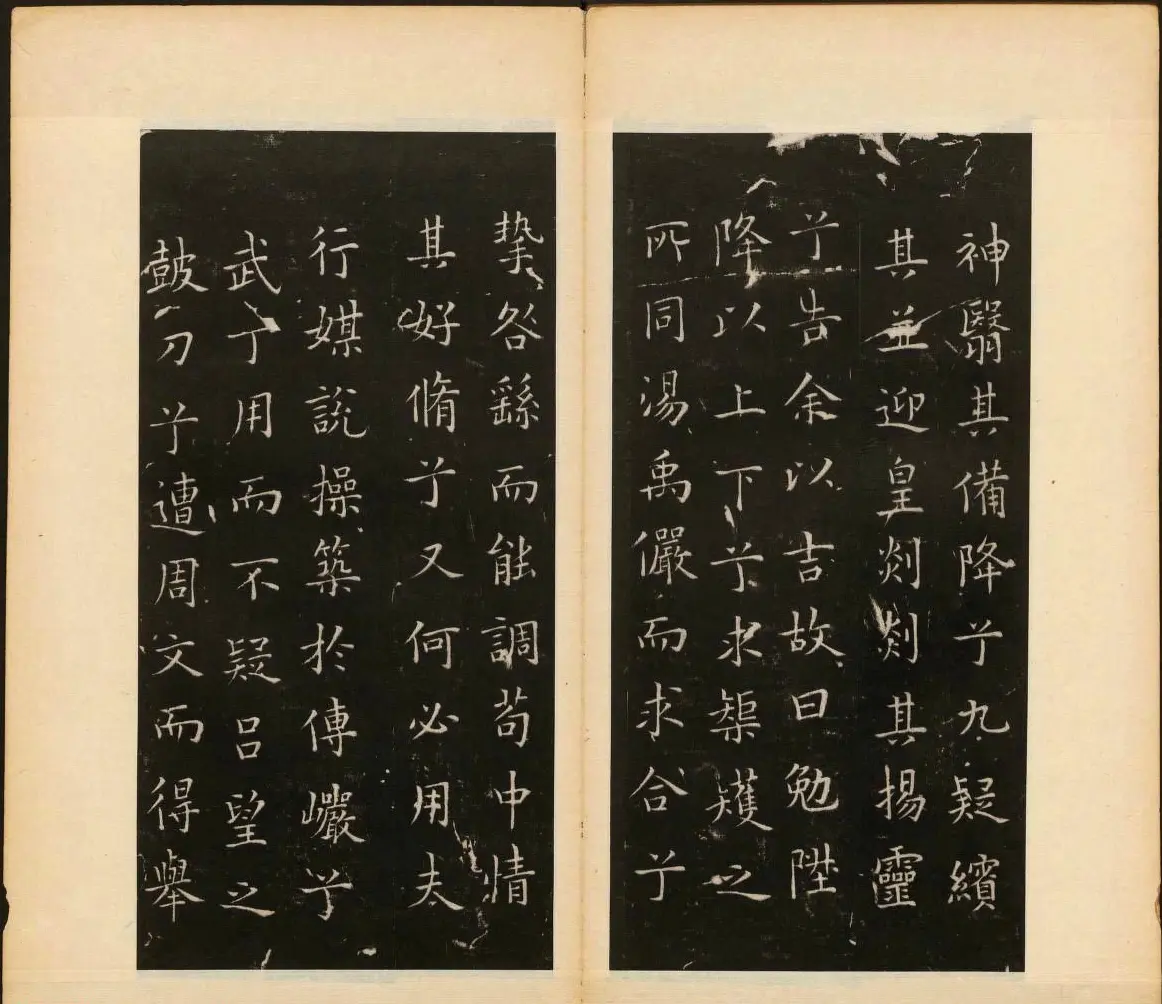 神翳其備降兮九疑繽
其並迎皇剡剡其揚靈
兮告余以吉故曰勉陞
降以上下兮求榘矱之
所同湯禹儼而求合兮
摯咎繇而能調苟中情
其好脩兮又何必用夫
行媒說操築於傅巗兮
武丁用而不疑呂望之
皷刀兮遭周文而得舉